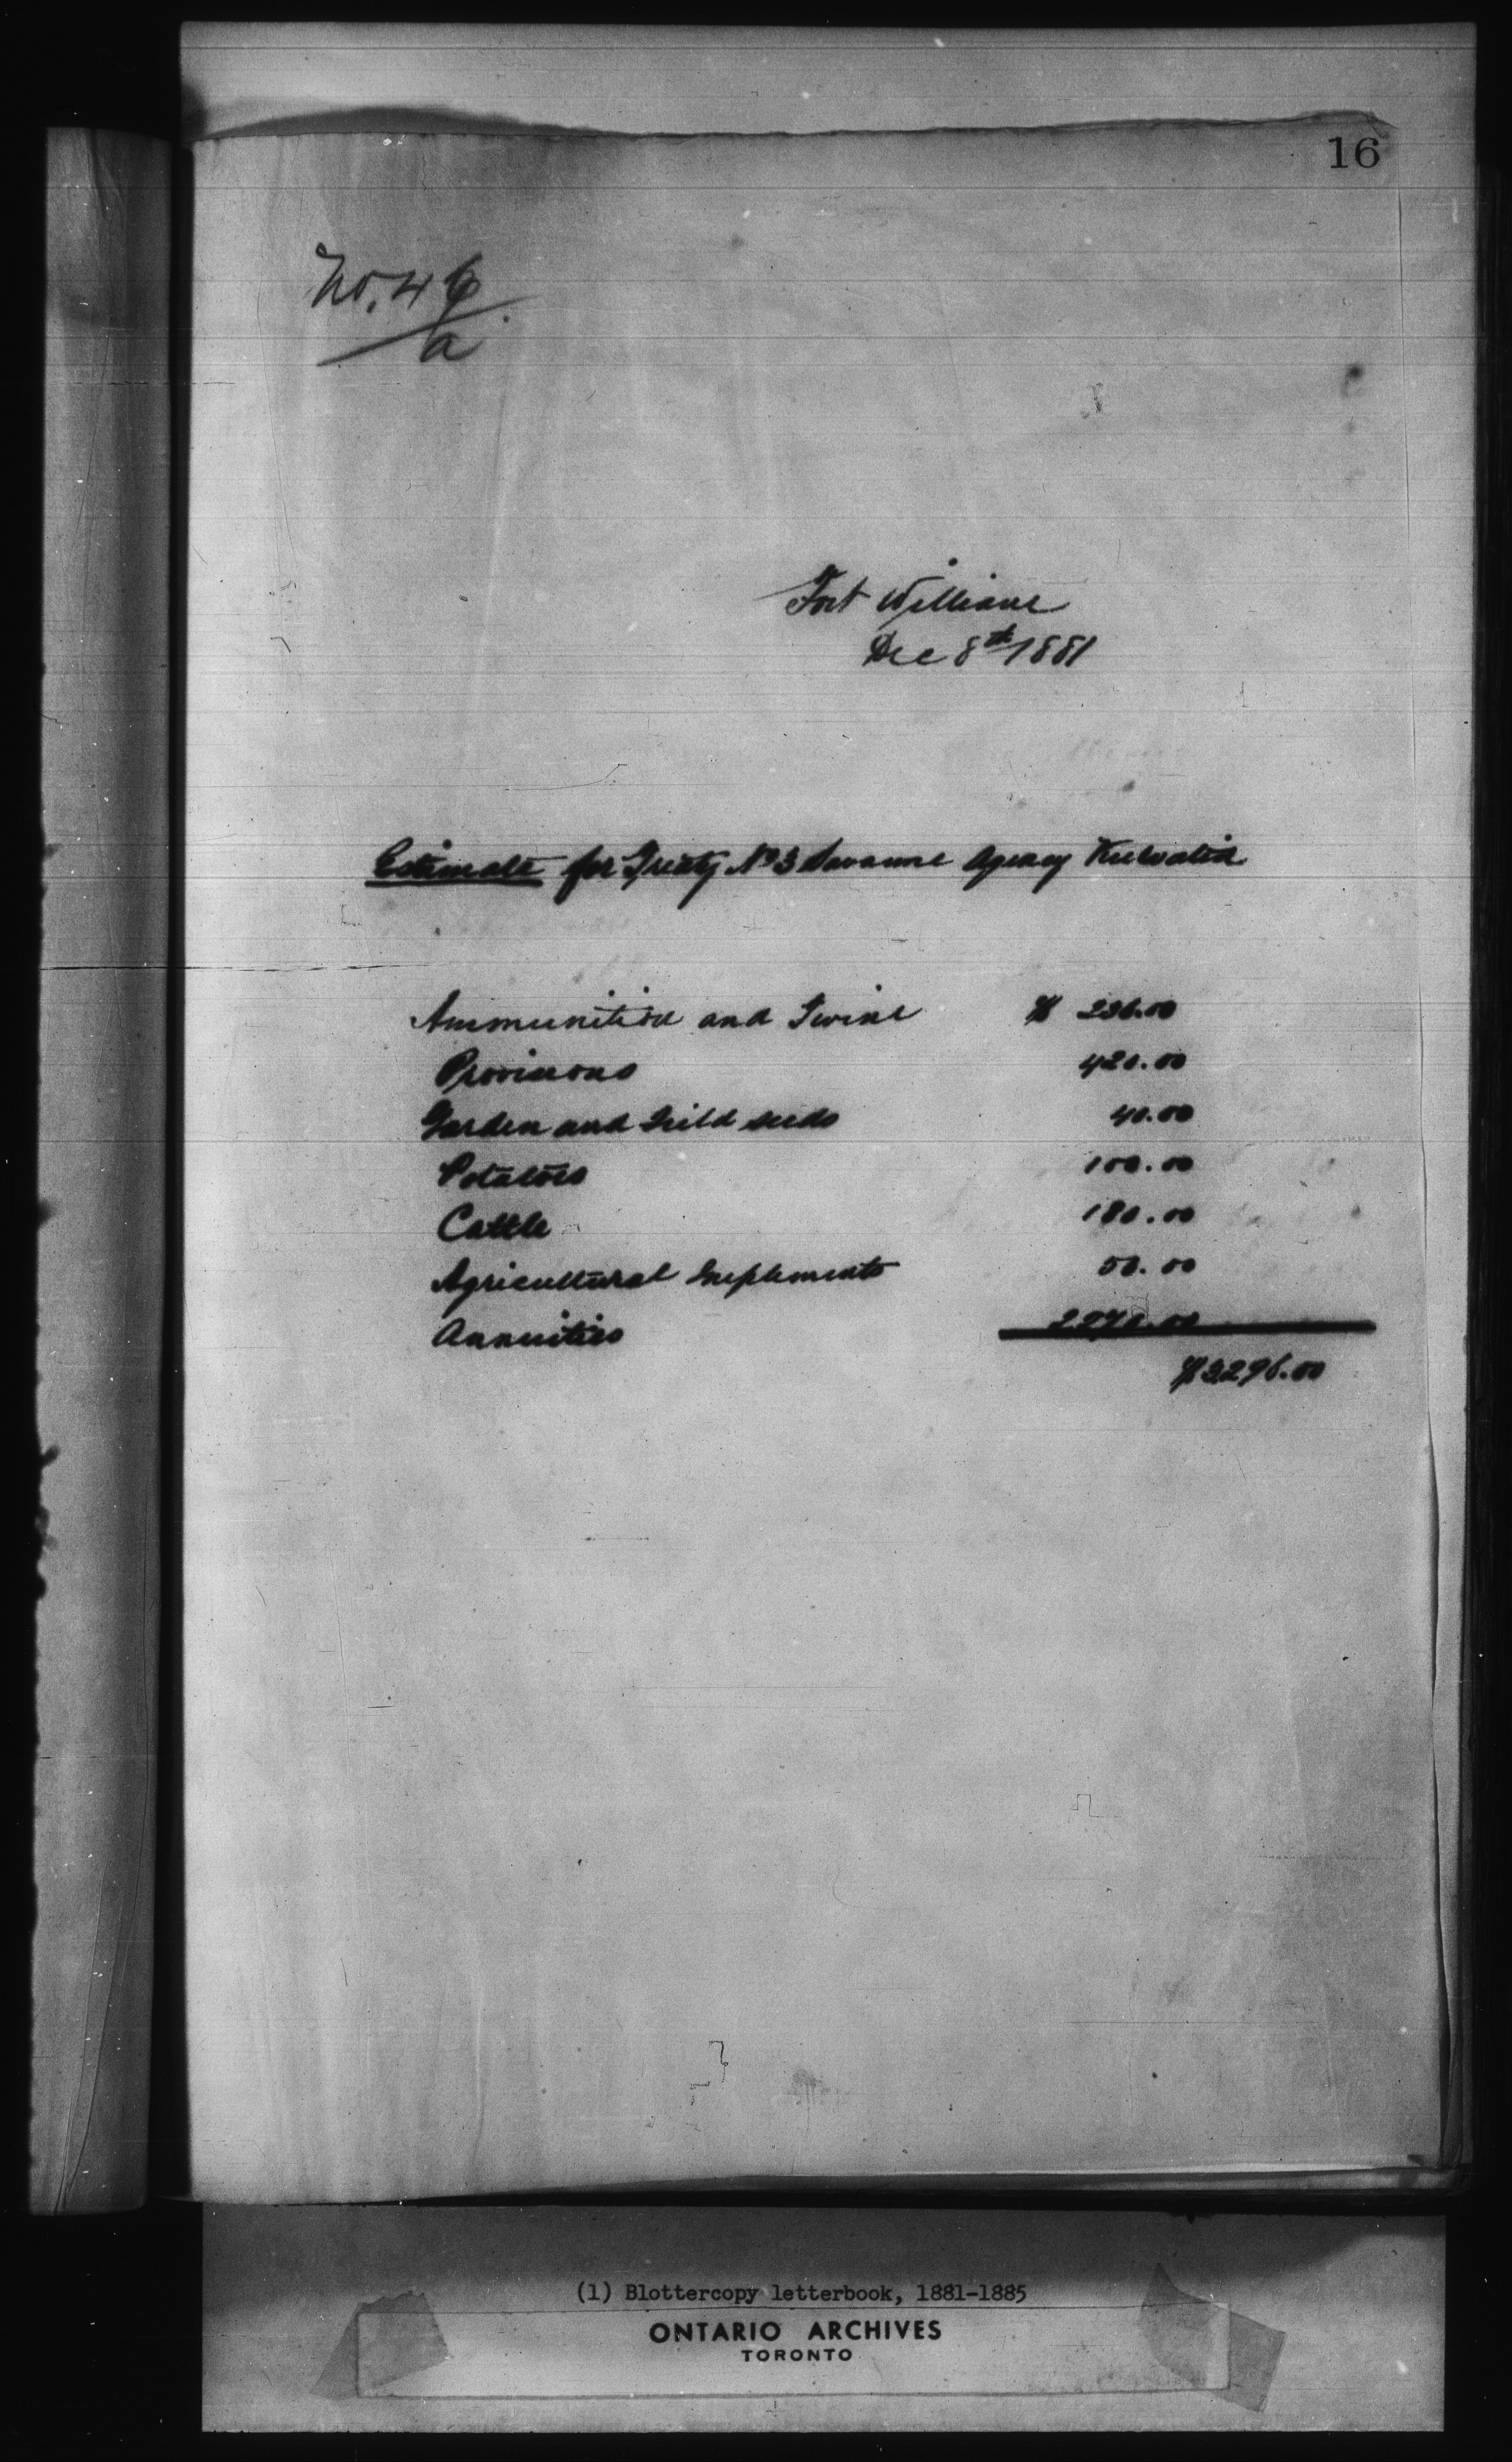 16
No. 46
a
Fort William
Dec 8th 1881
Estimate for Treaty No 3 Savanne Agency Keewatin
Ammunition and Twine $ 236.00
Provisions 420.00
Garden and Field seeds 40.00
Potatoes 100.00
Cattle 180.00
Agricultural Implements 50.00
Annuities 2270.00
$3296.00
(1) Blottercopy letterbook, 1881-1885
ONTARIO ARCHIVES
TORONTO